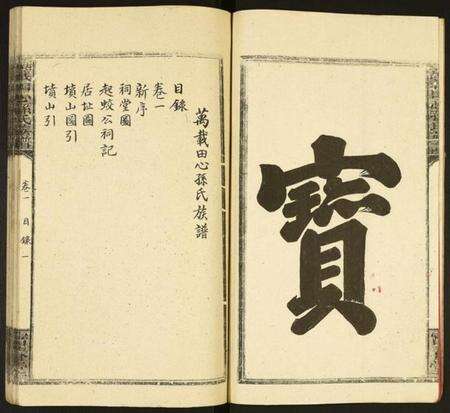 寶
萬載田心孫氏族譜
目錄
卷一
新序
祠堂圖
起蛟公祠記
居址圖
墳山圖引
墳山引
卷一 目錄 一